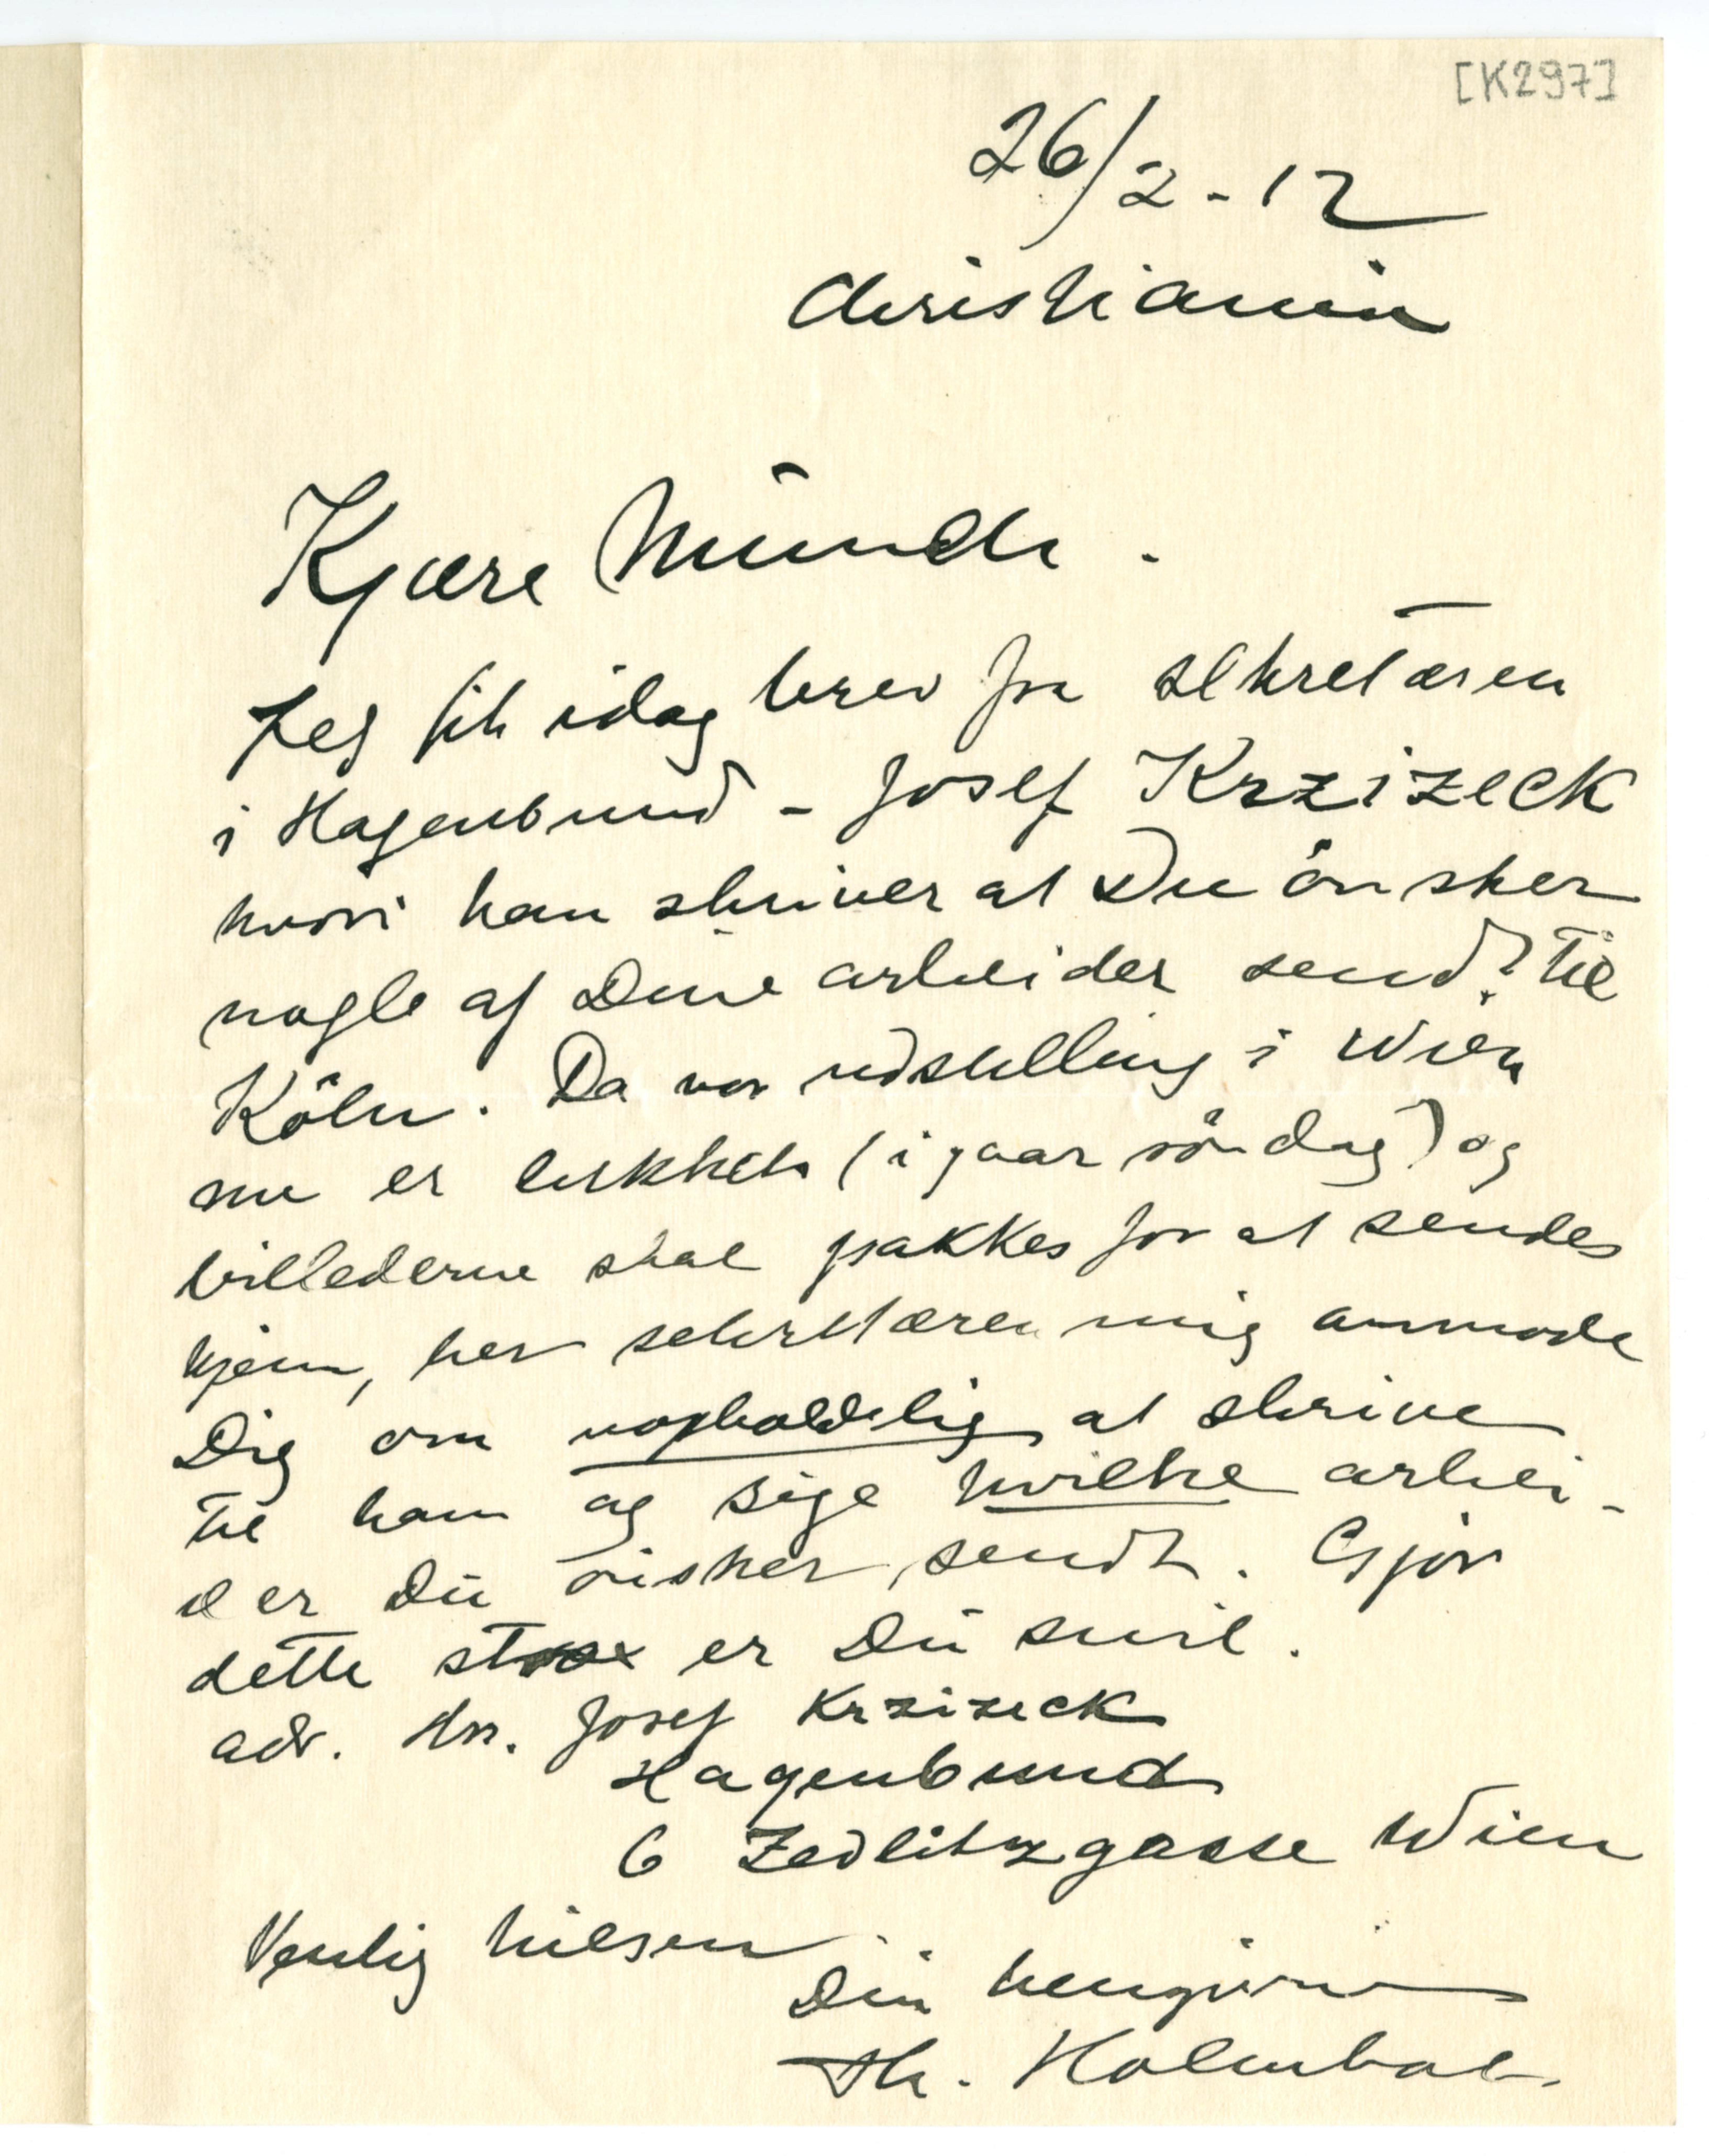 [K297]
26/2-12
Christiania
Kjære Münch.
Jeg fik idag brev fra sekretæren
i Hagenbund - Josef Krzizeck
hvori han skriver at Du ønsker
nogle af Dine arbeider send? til
Köln. Da vor udstilling i Wien
nu er lukket (igaar söndag) og
billederne skal pakkes for at sendes
hjem, ber sekretæren mig anmode
Dig om uopholdelig at skrive
til ham og sige hvilke arbei-
der Du ønsker sendt. Gjør
dette strax er Du snil.
adr. Hr. Josef Krzizeck
Hagenbund
6 Zedlitzgasse Wien
Venlig hilsen
Din hengivne
Th. Holmboe